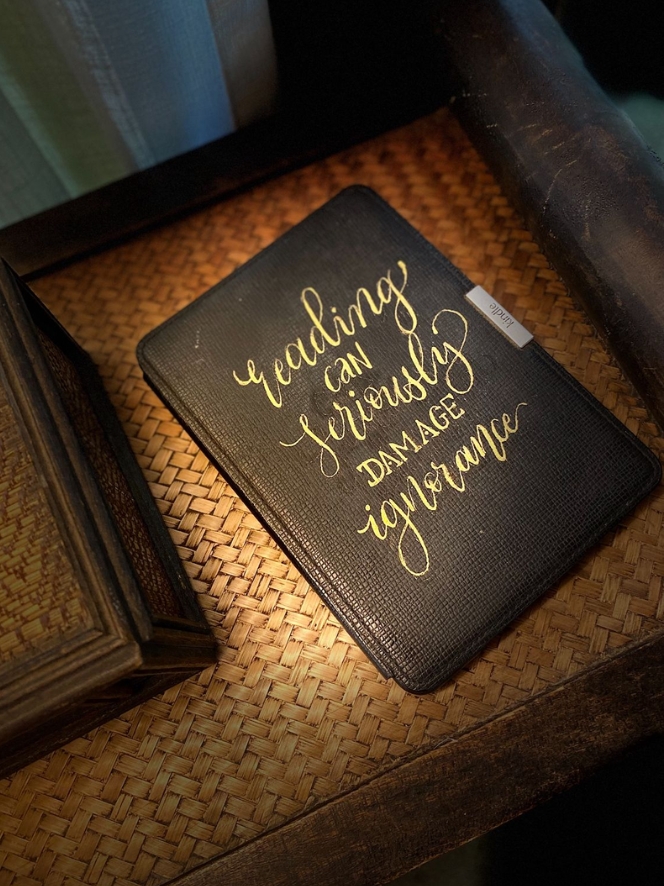 reading
CAN
seriously
DAMAGE
ignorance
kindle